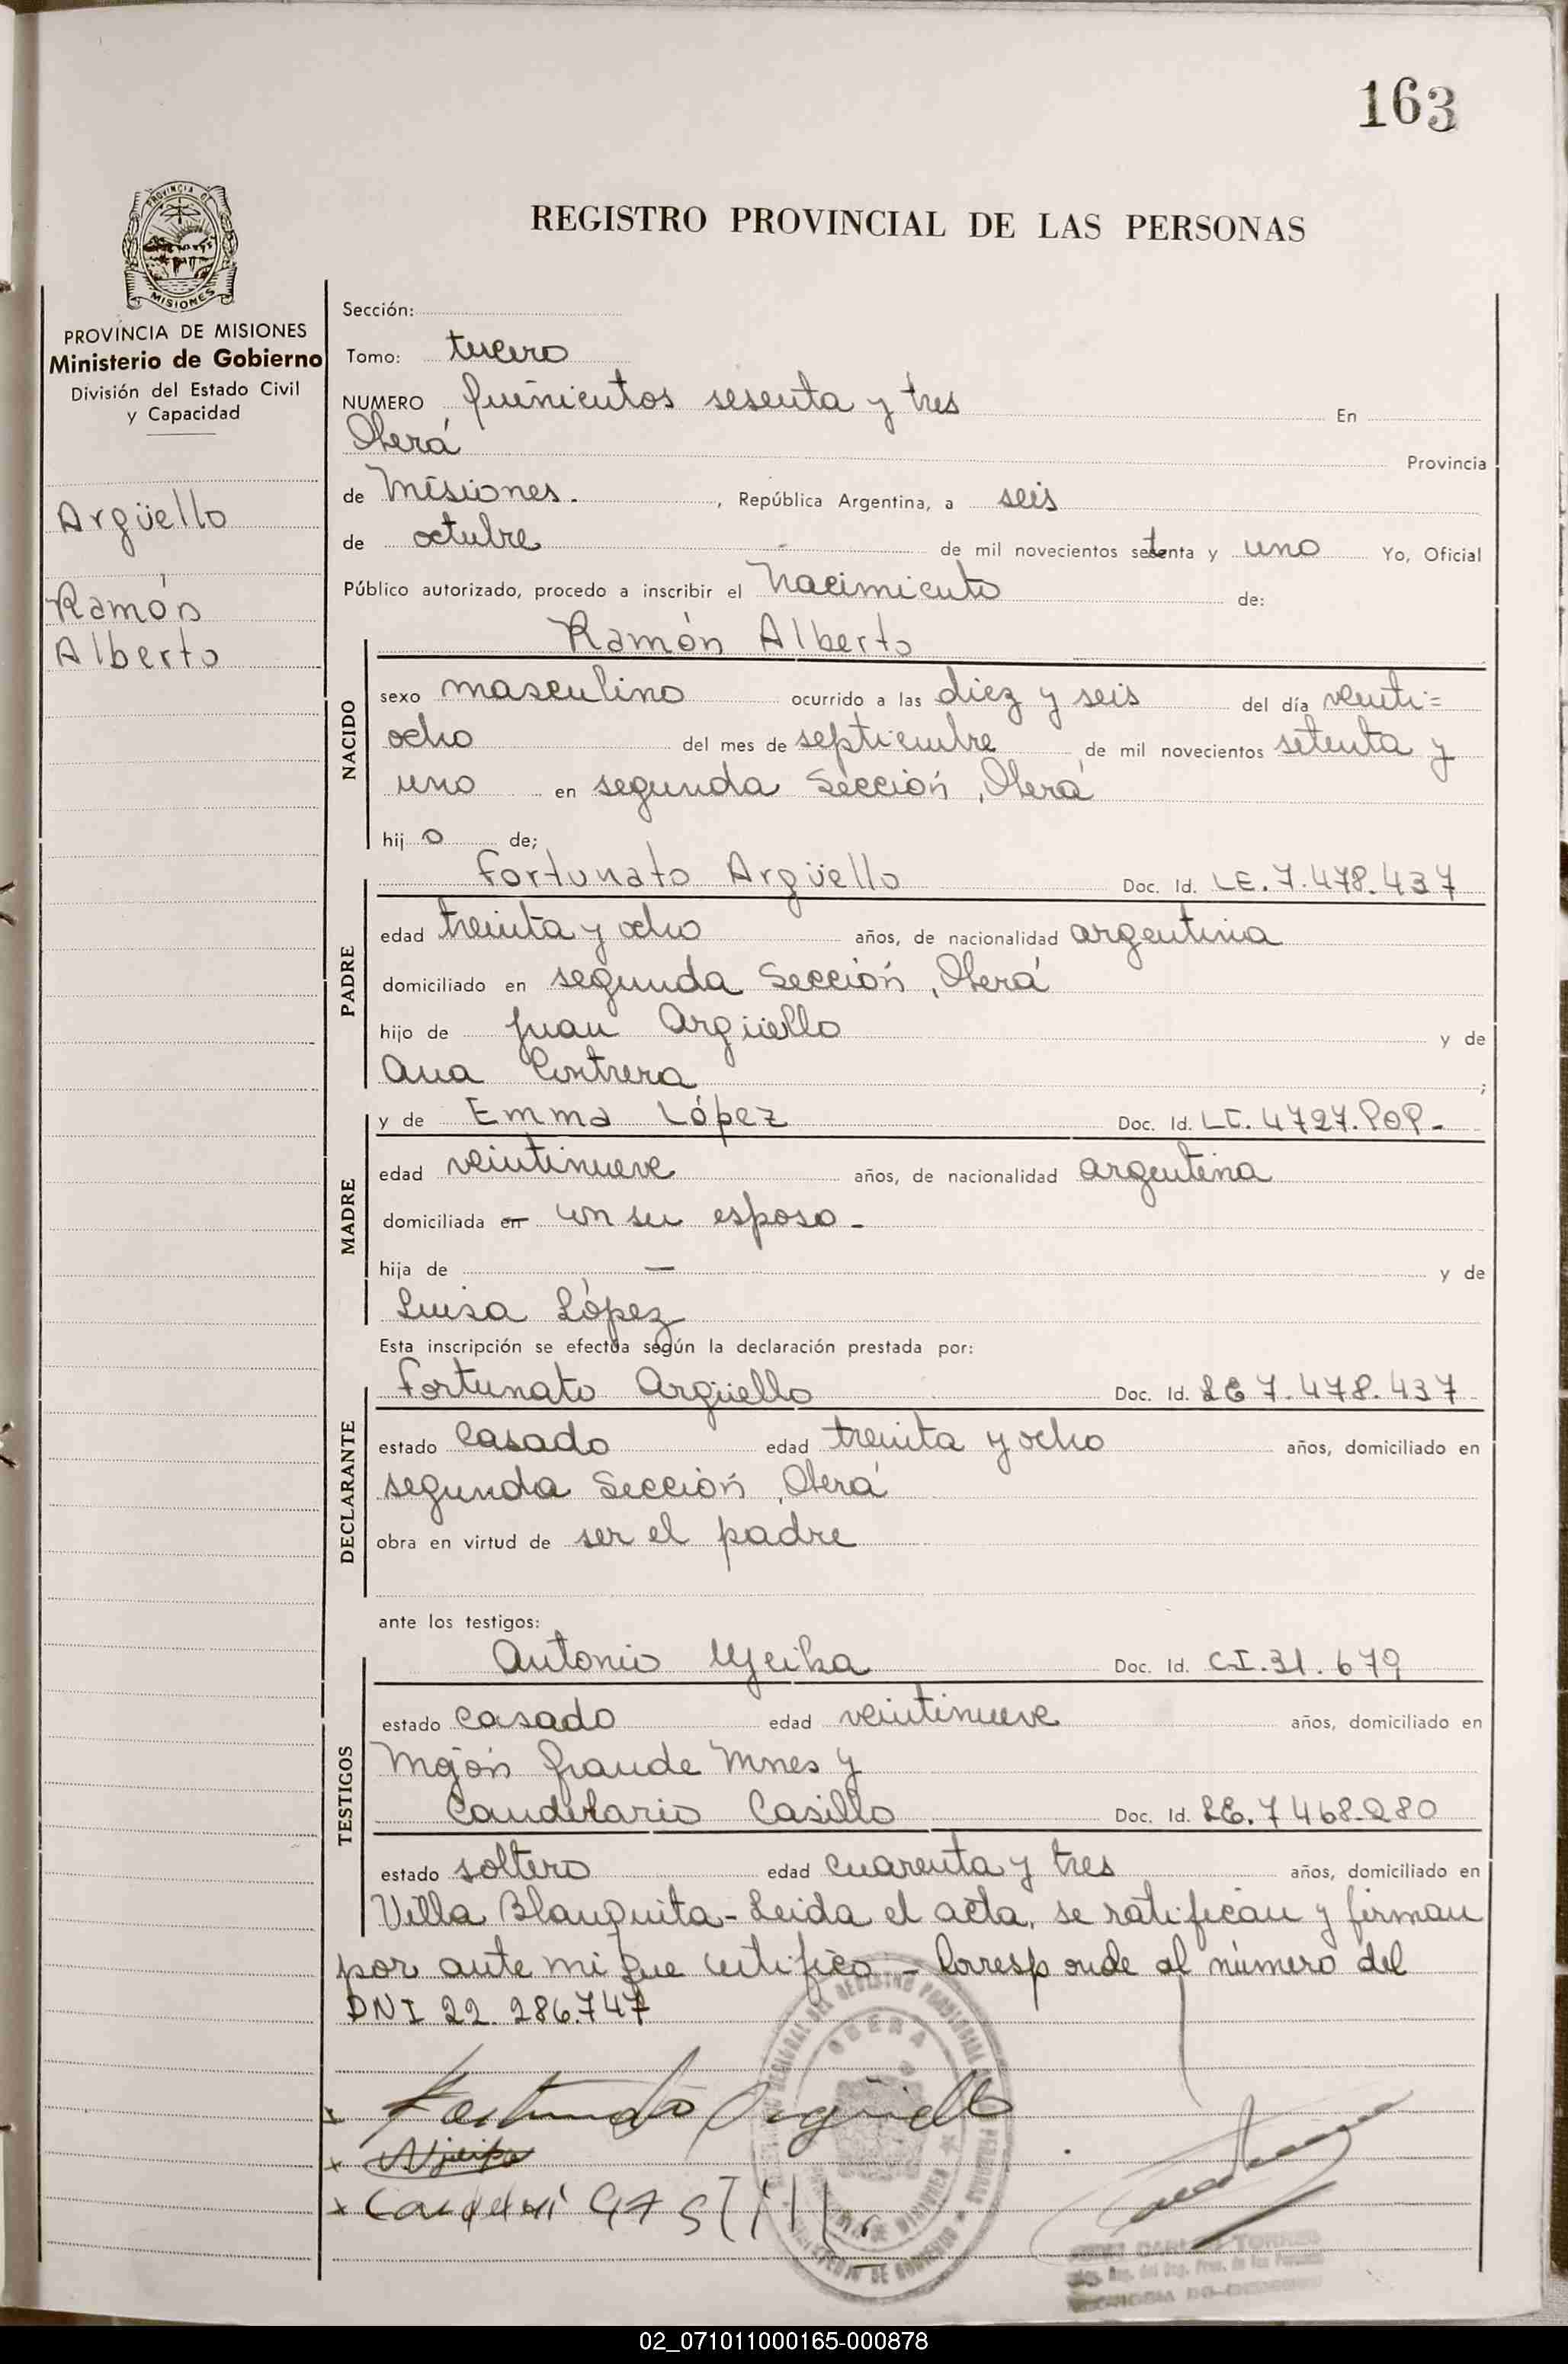 163
PROVINCIA DE MISIONES
REGISTRO PROVINCIAL DE LAS PERSONAS
PROVINCIA DE MISIONES
Ministerio de Gobierno
División del Estado Civil
y Capacidad
Argüello
Ramón
Alberto
Sección:
Tomo: tercero
NUMERO Quinientos sesenta y tres En
Oberá Provincia
de Misiones. , República Argentina, a seis
de octubre de mil novecientos setenta y uno Yo, Oficial
Público autorizado, procedo a inscribir el Nacimiento de:
Ramón Alberto
NACIDO
sexo masculino ocurrido a las diez y seis del día veinti=
ocho del mes de septiembre de mil novecientos setenta y
uno en segunda Sección, Oberá
hij o de;
PADRE
Fortunato Argüello Doc. Id. LE. 7.478.437
edad treinta y ocho años, de nacionalidad argentina
domiciliado en segunda Sección, Oberá
hijo de Juan Argüello y de
Ana Contrera ;
MADRE
y de Emma López Doc. Id. LC. 4727.808-
edad veintinueve años, de nacionalidad argentina
domiciliada en - con su esposo -
hija de — y de
Luisa López
Esta inscripción se efectúa según la declaración prestada por:
DECLARANTE
Fortunato Argüello Doc. Id. LE 7.478.437-
estado Casado edad treinta y ocho años, domiciliado en
segunda Sección, Oberá
obra en virtud de ser el padre
ante los testigos:
TESTIGOS
Antonio Doc. Id. C.I. 31.679
estado Casado edad veintinueve años, domiciliado en
Mojón Grande Mnes y
Candelario Casillo Doc. Id. LE. 7468.280
estado soltero edad cuarenta y tres años, domiciliado en
Villa Blanquita - Leida el acta, se ratifican y firman
por ante mi que certifico - Corresponde al número del
DNI 22.286.747
Fortunato Argüello
OBERA